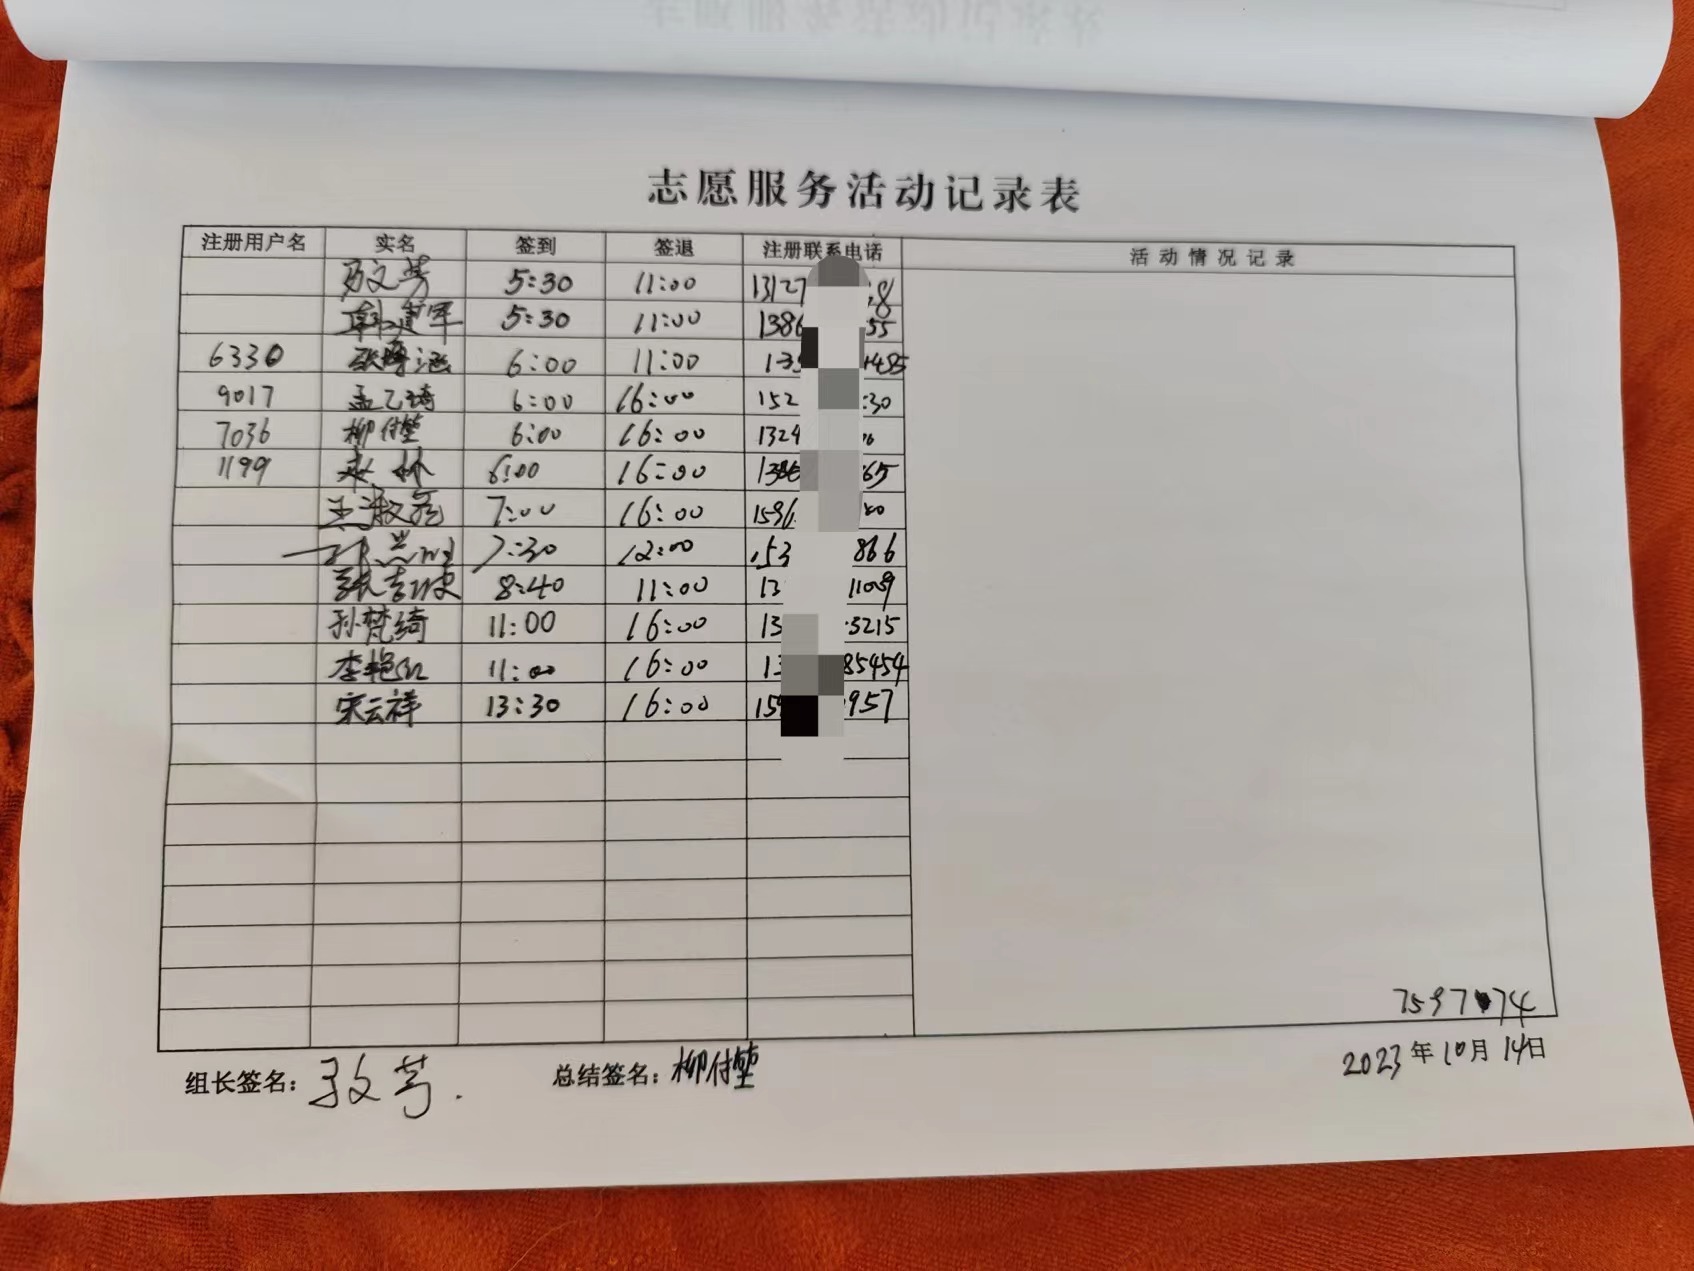 志愿服务活动记录表
注册用户名 实名 签到 签退 注册联系电话 活动情况记录
5:30 11:00 13127 8
5:30 11:00 1386 55
6330 6:00 11:00 485
9017 孟乙琦 6:00 16:00 152 30
7036 柳付堃 6:00 16:00 1324
1199 林 6:00 16:00 1386 65
7:00 16:00 1596
7:30 12:00 153 866
8:40 11:00 13 11009
孙梵绮 11:00 16:00 13 3215
李艳红 11:00 16:00 13 85454
宋云祥 13:30 16:00 15 957
7597 74
组长签名: 总结签名: 柳付堃 2023年10月14日